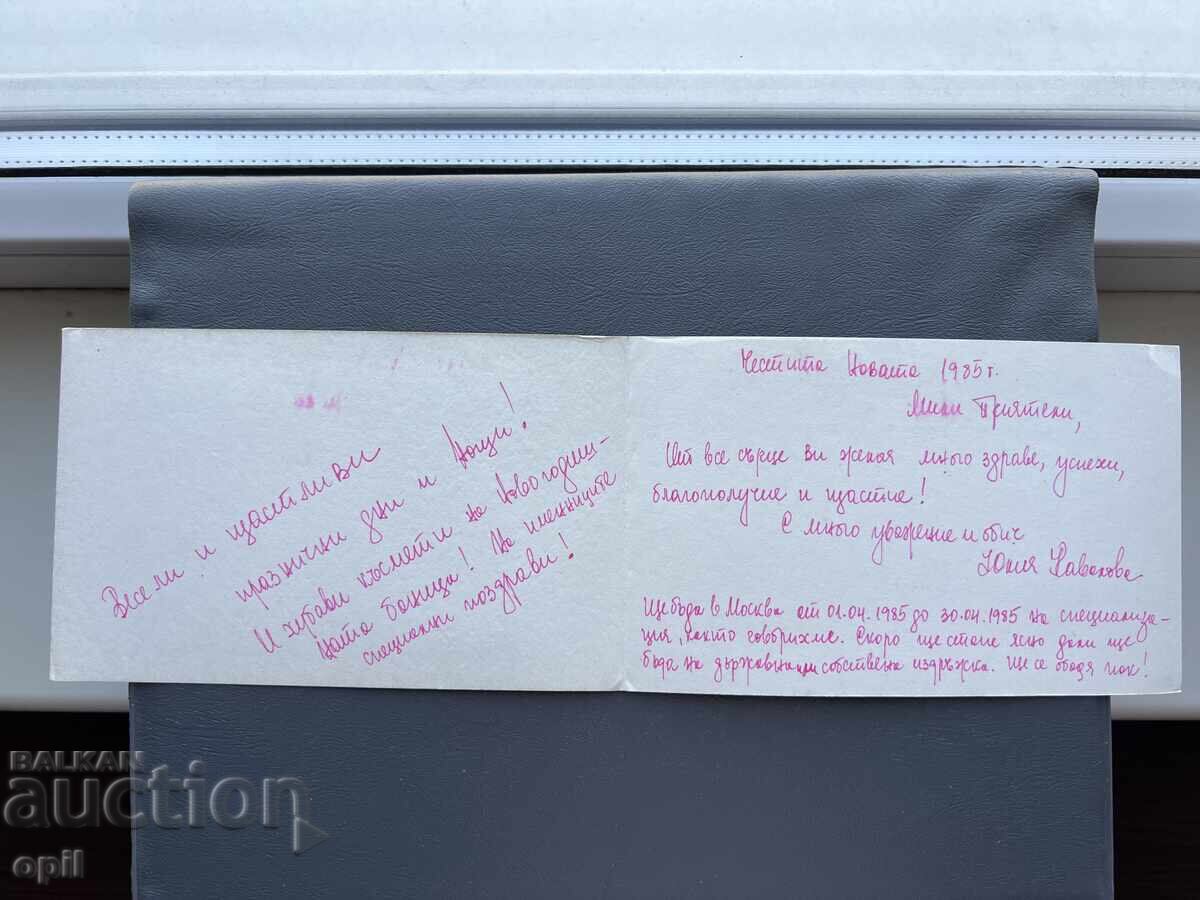 Весели и щастливи
празнични дни и нощи!
И хубави късмети на Новогодиш-
ната баница! На именниците
специални поздрави!
Честита Новата 1985 г.
Мили Приятели,
От все сърце Ви желая много здраве, успехи,
благополучие и щастие!
С много уважение и обич
Юлия
Ще бъда в Москва от 01.04.1985 до 30.04.1985 на специализа-
ция, както говорихме. Скоро ще стане ясно дали ще
бъда на държавна или собствена издръжка. Ще се обадя пак!
BALKAN
auction
opil